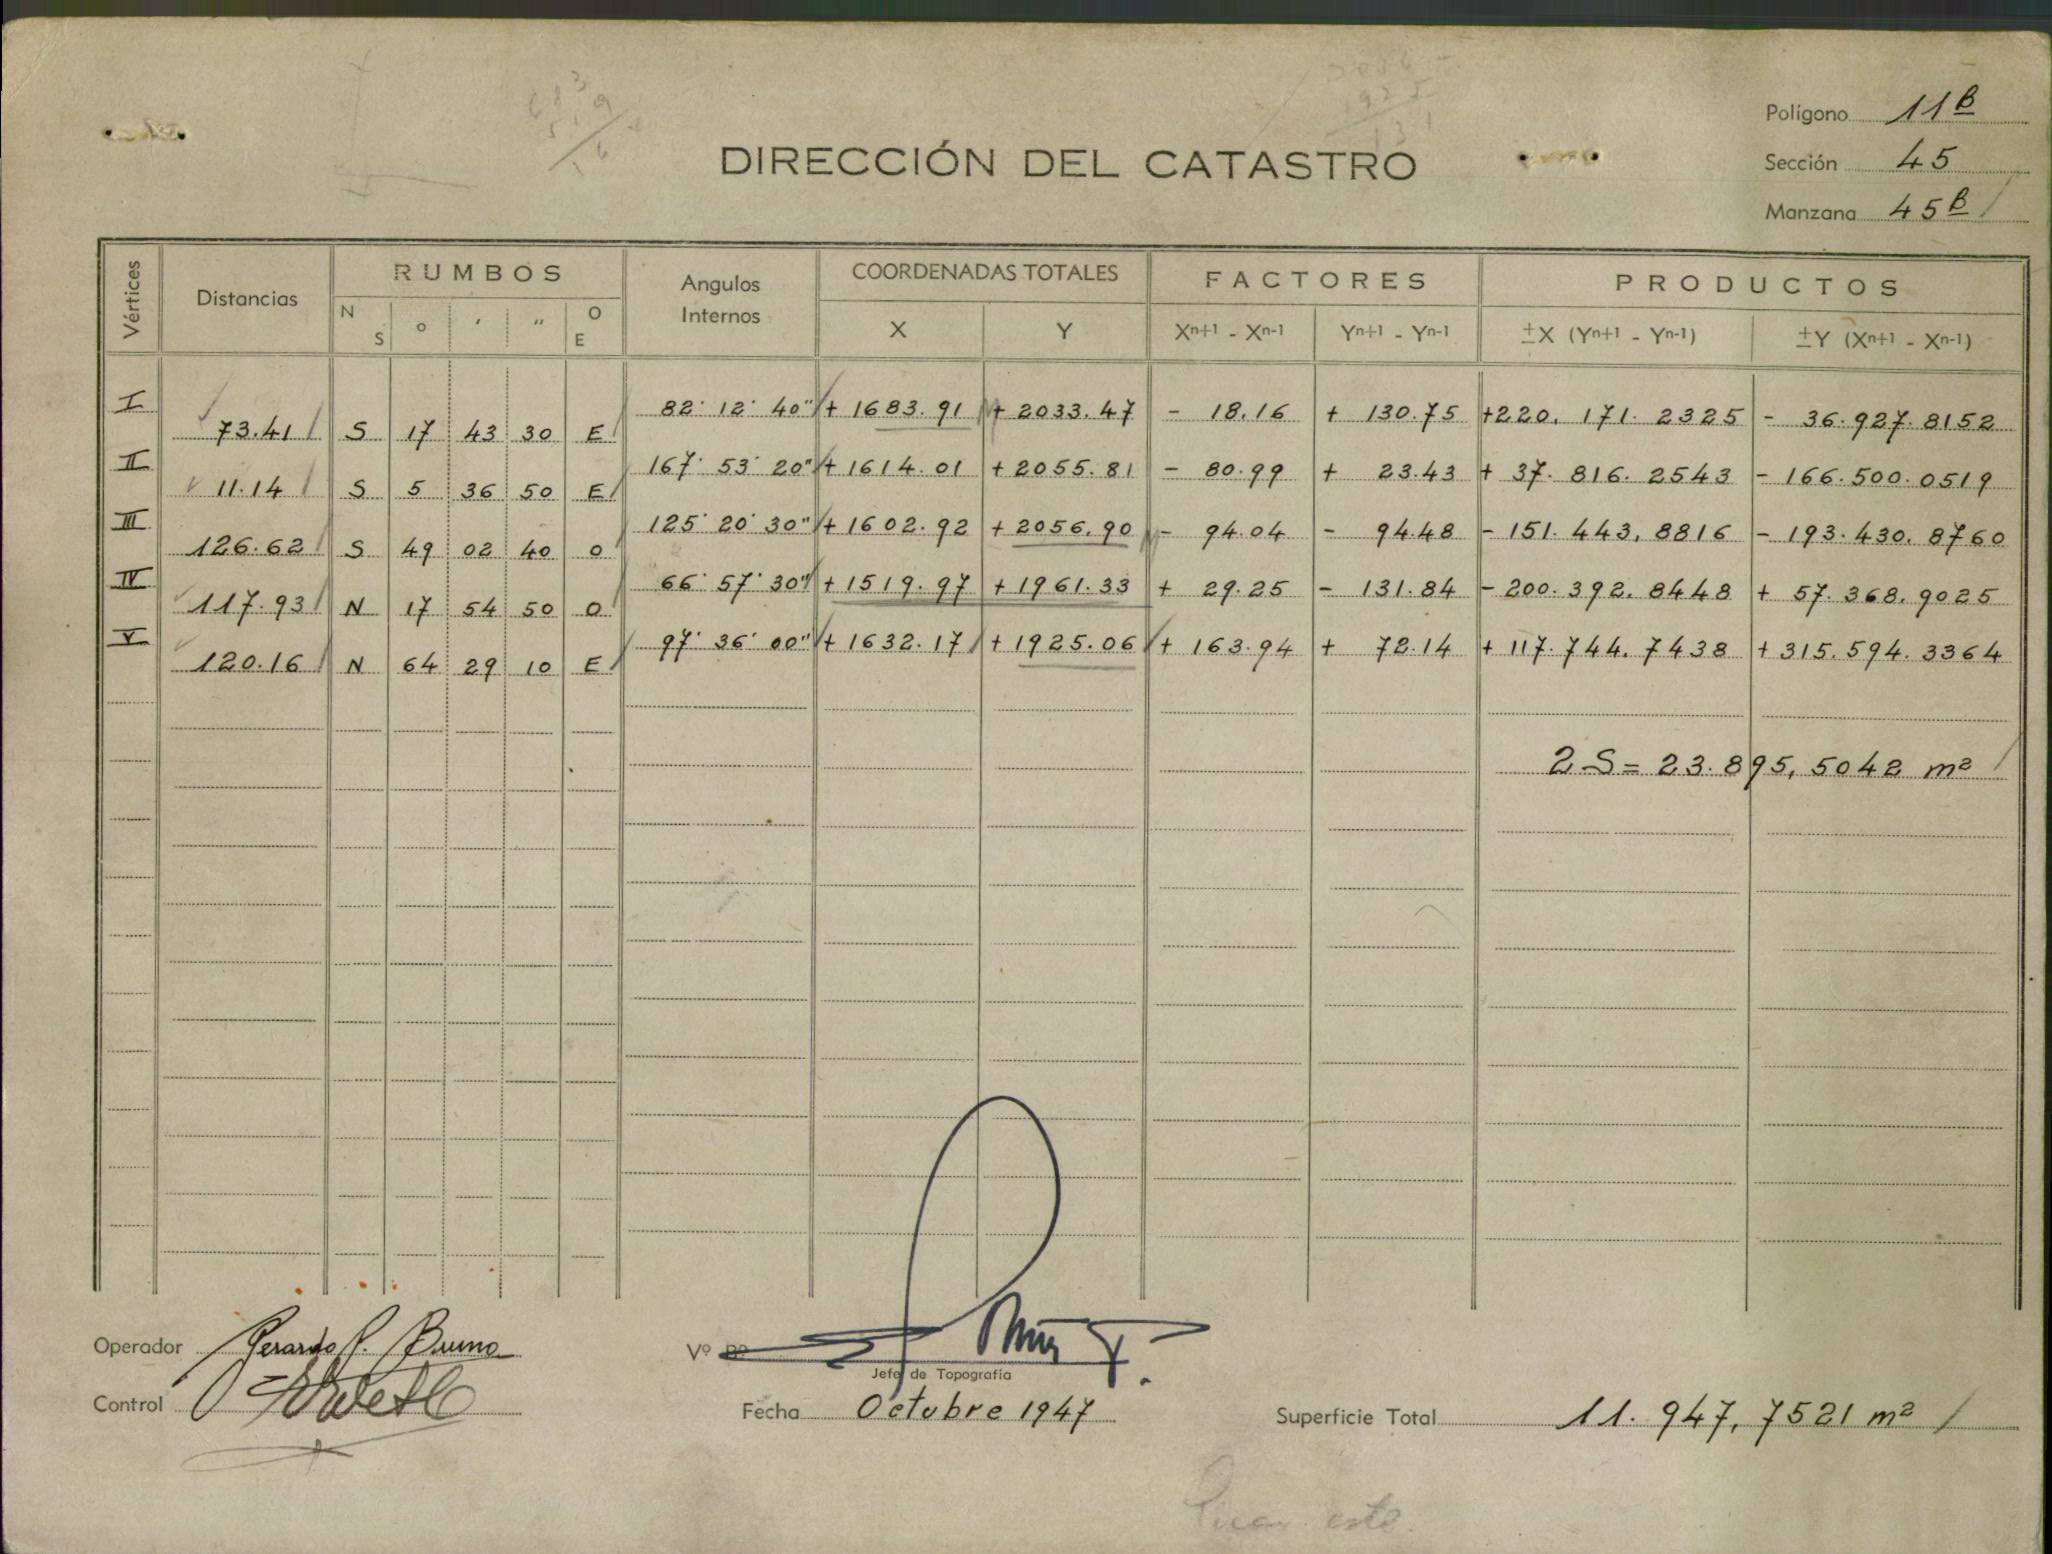 Polígono 11B
DIRECCIÓN DEL CATASTRO
Sección 45
Manzana 45B
Vértices Distancias RUMBOS Angulos Internos COORDENADAS TOTALES FACTORES PRODUCTOS
N S o ' " O E X Y Xn+1 - Xn-1 Yn+1 - Yn-1 ±X (Yn+1 - Yn-1) ±Y (Xn+1 - Xn-1)
I 82° 12' 40" + 1683.91 + 2033.47 - 18.16 + 130.75 +220.171.2325 - 36.927.8152
73.41 S 17 43 30 E
II 167° 53' 20" + 1614.01 + 2055.81 - 80.99 + 23.43 + 37.816.2543 - 166.500.0519
11.14 S 5 36 50 E
III 125° 20' 30" + 1602.92 + 2056.90 - 94.04 - 94.48 - 151.443,8816 - 193.430.8760
126.62 S 49 02 40 O
IV 66° 57' 30" + 1519.97 + 1961.33 + 29.25 - 131.84 - 200.392.8448 + 57.368.9025
117.93 N 17 54 50 O
V 97° 36' 00" + 1632.17 + 1925.06 + 163.94 + 72.14 + 117.744.7438 + 315.594.3364
120.16 N 64 29 10 E
2S = 23.895,5042 m²
Operador Gerardo P. Bruno
Vº Bº
Jefe de Topografía
Control
Fecha Octubre 1947
Superficie Total 11.947,7521 m²